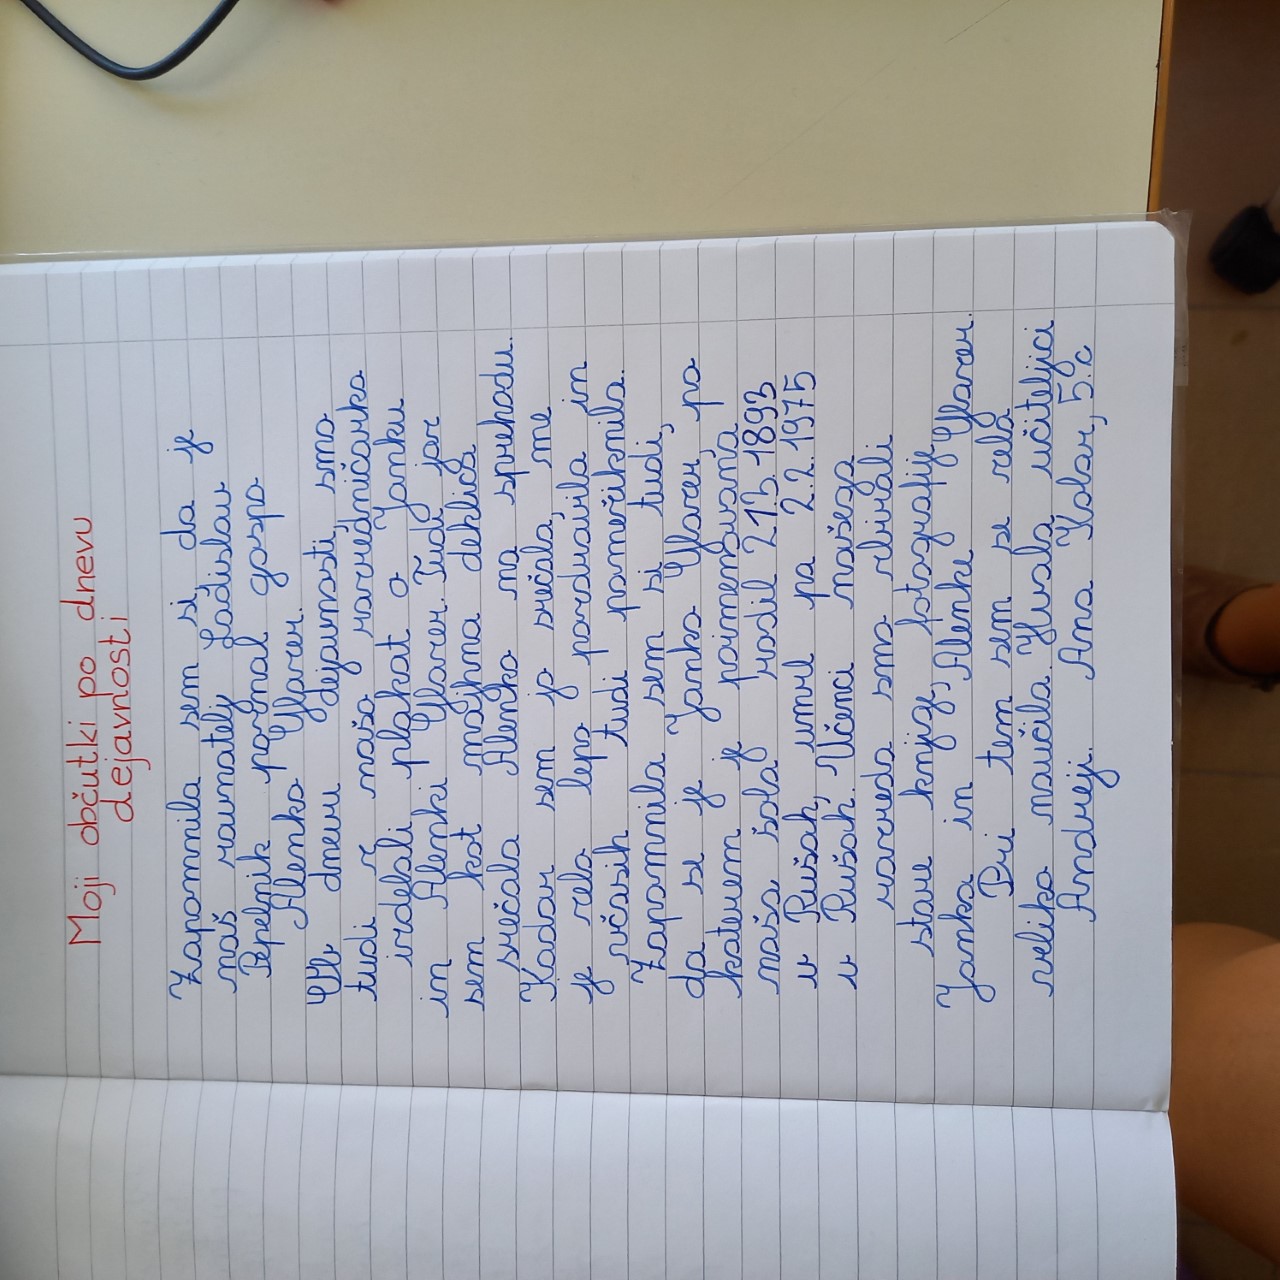 Moji občutki po dnevu
dejavnosti
Zapomnila sem si da je
naš ravnatelj Ladislav
Pepelnik poznal gospo
Alenko Glazer.
Ob dnevu dejavnosti, smo
tudi z našo razredničarko
izdelali plakat o Janku
in Alenki Glazer. Tudi jaz
sem kot majhna deklica
srečala Alenko na sprehodu.
Kadar sem jo srečala, me
je zelo lepo pozdravila in
včasih tudi pomežiknila.
Zapomnila sem si tudi,
da se je Janko Glazer, po
katerem je poimenovana
naša šola rodil 21.3.1893
v Rušah, umrl pa 2.2.1975
v Rušah. Učenci našega
razreda smo zbirali
stare knjige, fotografije
Janka in Alenke Glazer.
Pri tem sem se zelo
veliko naučila. Hvala učiteljici
Andreji. Ana Kolar, 5.c